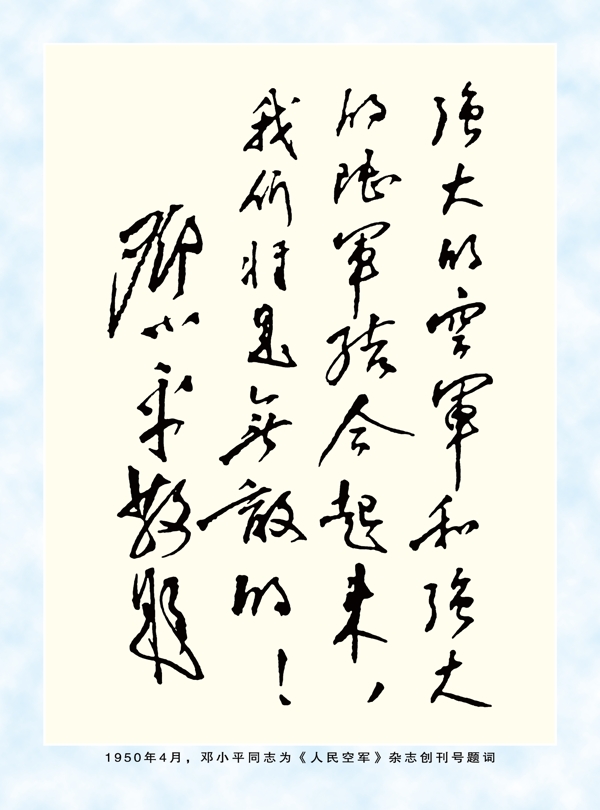 強大的空軍和強大
的陆軍結合起来，
我们将是無敵的！
鄧小平敬題
1950年4月，邓小平同志为《人民空军》杂志创刊号题词